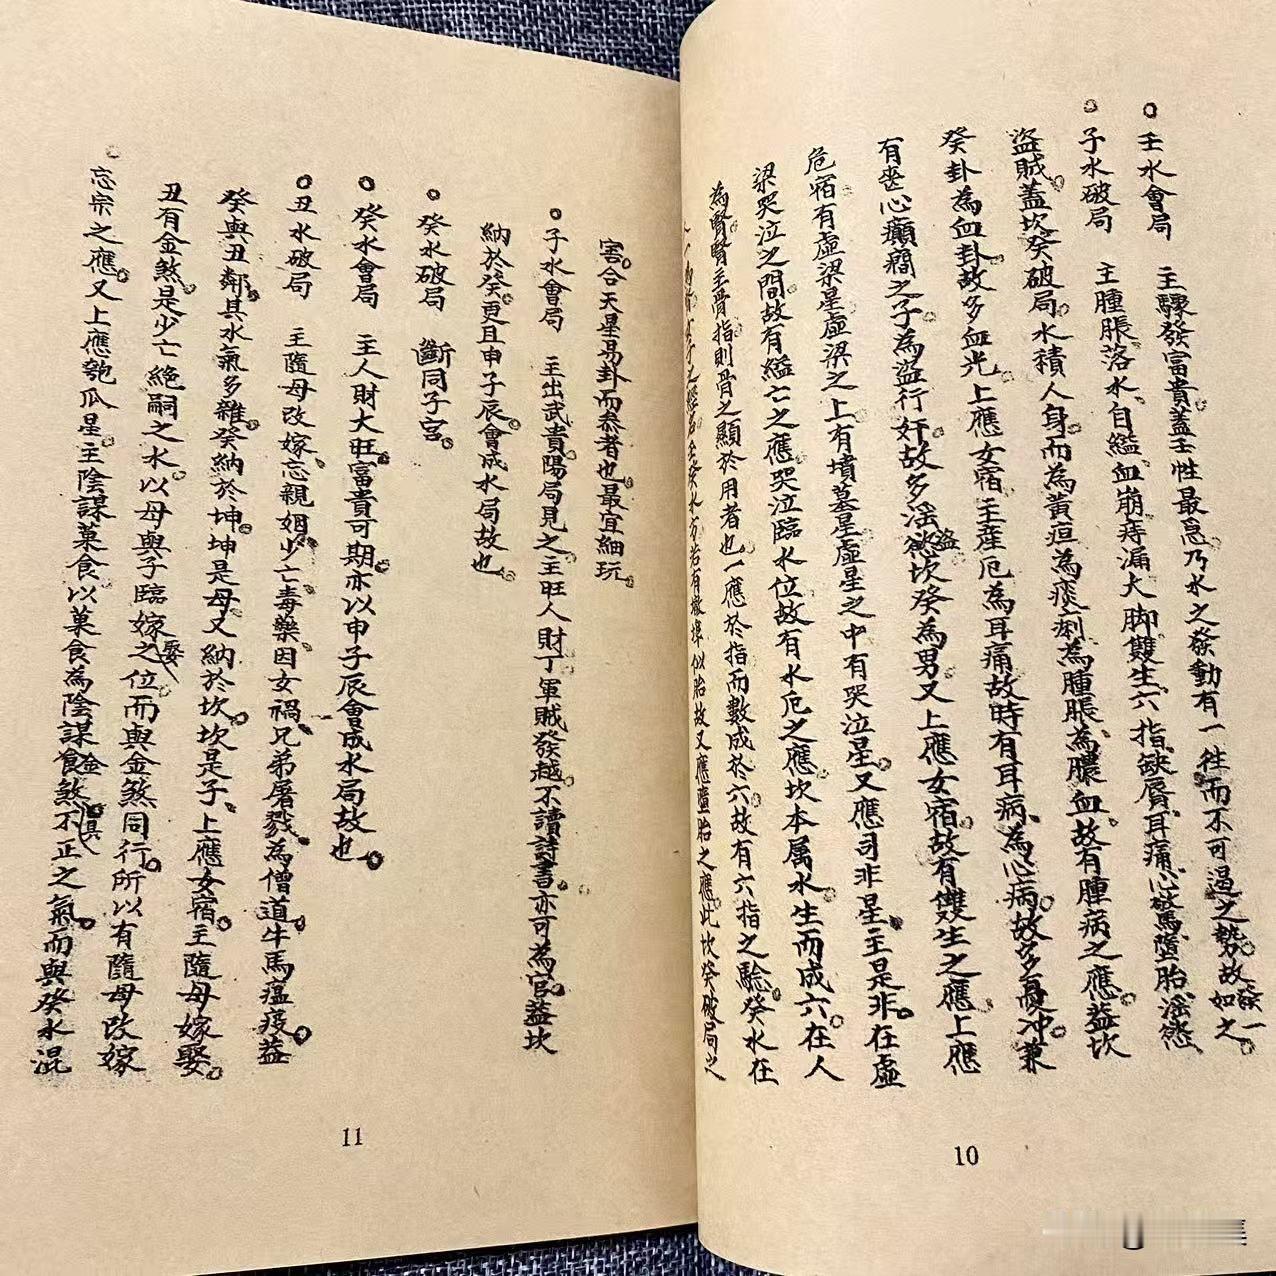 壬水會局 主驟發富貴。蓋壬性最急。乃水之發動有一往而不可過之勢。故發如之。
子水破局 主腫脹落水、自縊、血崩、痔漏、大脚、雙生、六指、缺唇、耳痛、心驚、墮胎、淫慾、
盜賊。蓋坎癸破局。水積人身。而為黃疸、為痰劑、為腫脹、為膿血。故有腫病之應。益坎
癸卦為血卦。故多血光。上應女宿。主產厄。為耳痛。故時有耳病。為心病。故多憂冲。兼
有喪心癲癎之子。為盜行奸。故多淫慾。坎癸為男。又上應女宿。故有雙生之應。上應
危宿。有虛梁星。虛梁之上。有墳墓星。虛星之中。有哭泣星。又應司非星。主是非。在虛
梁哭泣之間。故有縊亡之應。哭泣臨水位。故有水厄之應。坎本属水。生而成六。在人
為腎。腎主骨。指則骨之顯於用者也。一應於指。而數成於六。故有六指之驗。癸水在
墮胎之應。此坎癸破局之
10
害合天星易卦而叅者也。最宜細玩。
子水會局 主出武貴。陽局見之。主旺人財丁。軍賊發越。不讀詩書。亦可為官。益坎
納於癸。更且申子辰會成水局故也。
癸水破局 斷同子宮。
癸水會局 主人財大旺。富貴可期。亦以申子辰會成水局故也。
丑水破局 主隨母改嫁、忘親姻、少亡、毒藥、因女禍、兄弟屠戮、為僧道、牛馬瘟疫。益
癸與丑鄰。其水氣多雜。癸納於坤。坤是母。又納於坎。坎是子。上應女宿。主隨母嫁娶。
丑有金煞。是少亡絕嗣之水。以母與子臨嫁娶之位。而與金煞同行。所以有隨母改嫁
忘宗之應。又上應匏瓜星。主陰謀菓食。以菓食為陰謀。食金煞不正之氣。而與癸水混
11